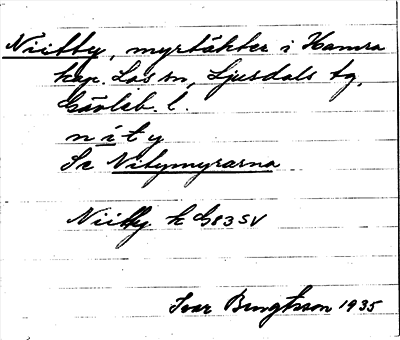 Niitty, myrtäkter i Hamra
kap. Los sn, Ljusdals tg,
Gävleb. l.
nity
Se Nitymyrarna
Niitty k G83SV
Ivar Bengtsson 1935